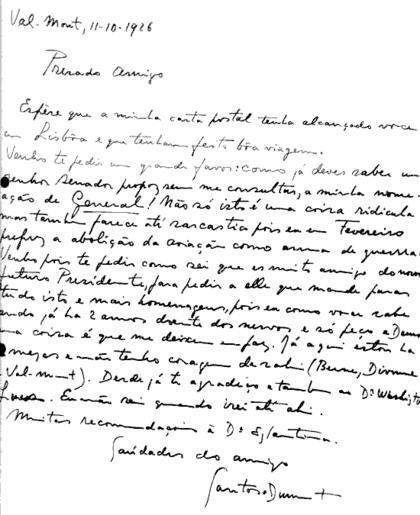 Val-Mont, 11-10-1926
Prezado Amigo
Espére que a minha carta postal tenha alcançado voce
em Lisbôa e que tenham feito bôa viagem.
Venho te pedir um grande favor: como já deves saber um
senhor Senador propoz, sem me consultar, a minha nome-
ação de General! Não só isto é uma coiza ridicula
mas tambem parece até sarcastica pois eu em Fevereiro
pedi a abolição da aviação como arma de guerra.
Venho pois te pedir como sei que es muito amigo do novo
futuro Presidente, para pedir a elle que mande parar
tudo isto e mais homenagens, pois eu como voce sabe
ando já ha 2 annos doente dos nervos e só peço a Deus
uma coiza é que me deixem em paz. Já aqui estou ha
mezes e não tenho coragem de sahir (Berne, Divonne
Val-Mont). Desde já te agradeço e tambem ao Dr Washington
Luis. Eu não sei quando irei até ahi.
Muitas recomendações à Da Eglantina.
Saudades do amigo
Santos=Dumont